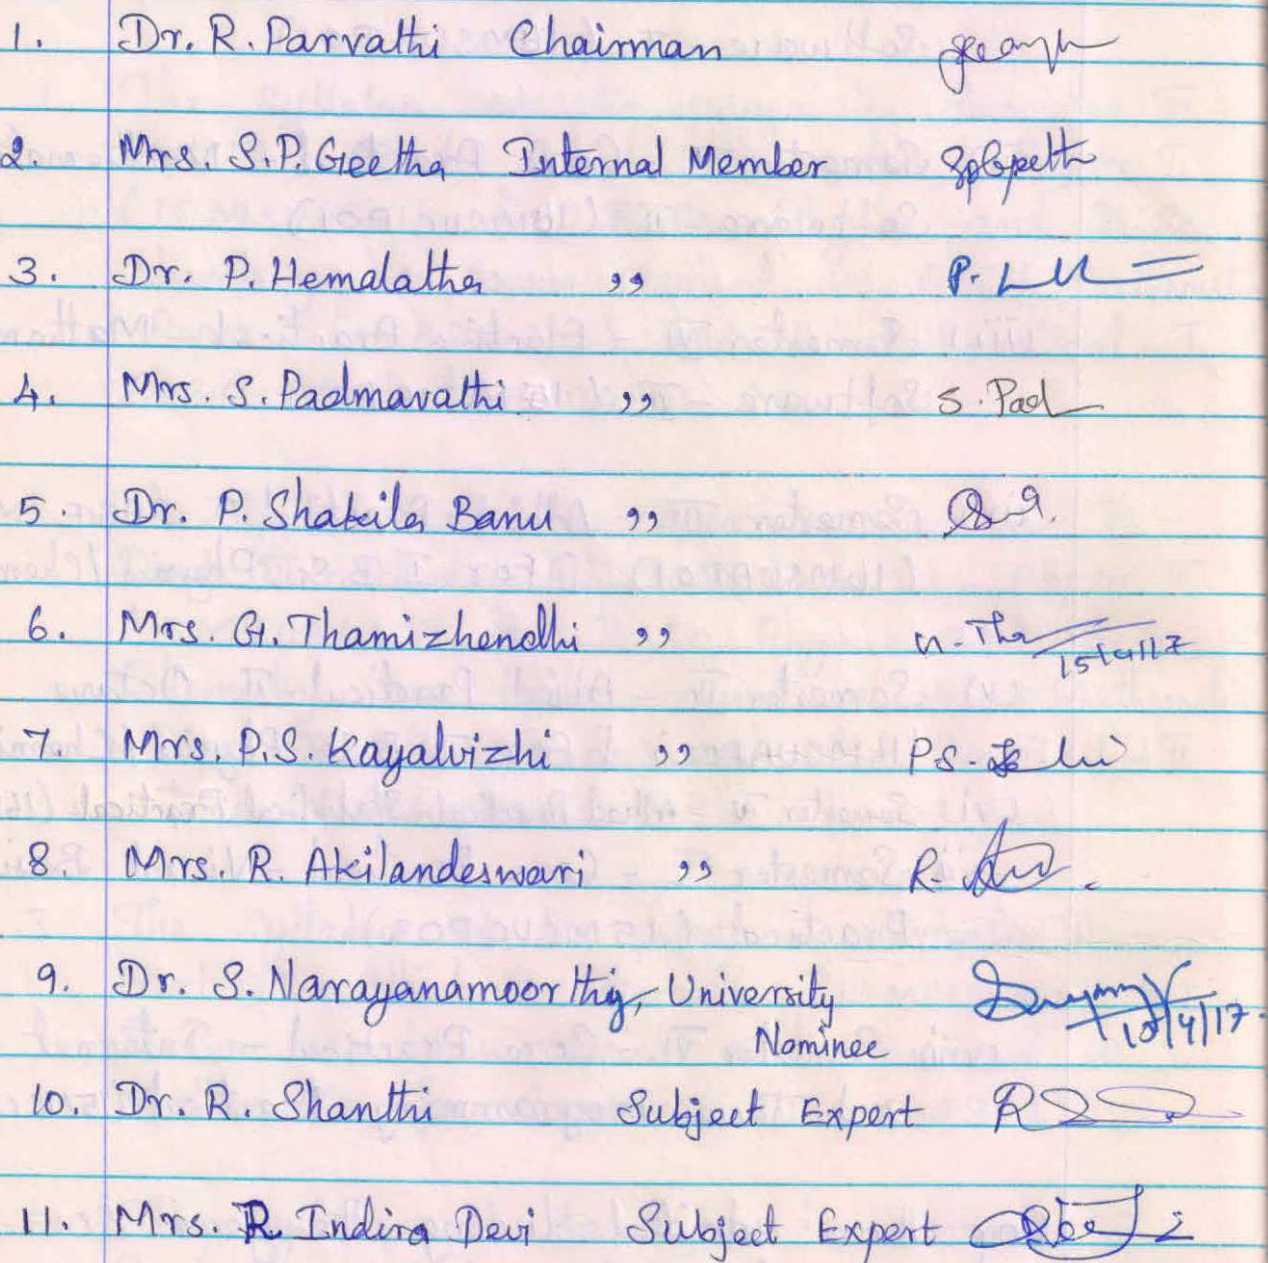 1. Dr. R. Parvathi Chairman
2. Mrs. S.P. Geetha Internal Member
3. Dr. P. Hemalatha ,, P.
4. Mrs. S. Padmavathi ,, S. Pad
5. Dr. P. Shakila Banu ,,
6. Mrs. G. Thamizhendhi ,, Tha 15/4/17
7. Mrs. P.S. Kayalvizhi ,, P.S.
8. Mrs. R. Akilandeswari ,, R.
9. Dr. S. Narayanamoorthy, University 15/4/17
Nominee
10. Dr. R. Shanthi Subject Expert
11. Mrs. R. Indira Devi Subject Expert